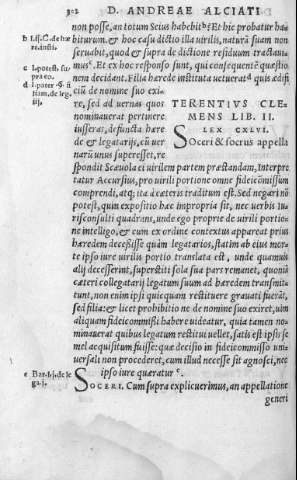 302 D. ANDREAE ALCIATI
non posse, an totum Seius habebit b? Et hic probatur ha-
b l. si §. C. de hæ
bitũrum. & hoc casu dictio illa uirilis, naturã suam non
seruabit, quod & supra de dictione residuum tractaui-
c l. potest. su-
pra eo.
mus c. Et ex hoc responso sunt, qui consequentẽ quæstio-
d l. pater §.
nem decidant. Filia hærede instituta uetuerat d quis ædifi
ciũ de nomine suo exi-
re, sed ad uernas quos
nominauerat pertinere
iusserat, defuncta hære
de & legatarijs, cũ uer
narũ unus superesset, re
TERENTIVS CLE-
MENS LIB. II.
LEX CXLVI.
Soceri & socrus appella
spondit Scæuola ei uirilem partem præstandam, Interpre
tatur Accursius, pro uirili portione omne fideicõmissum
comprendi, atq; ita deceteris traditum est. Sed negari nõ
potest, quin expositio hæc impropria sit, nec uerbis Iu-
risconsulti quadrans, unde ego proprie de uirili portio-
ne intelligo, & cum ex ordine contextus appareat prius
hæredem decessisse quàm legatarios, statim ab eius mor-
te ipso iure uirilis portio translata est, unde quamuis
alij decesserint, superstiti sola sua pars remanet, quoniã
cæteri collegatarij legatum suum ad hæredem transmit-
tunt, non enim ipsi quicquam restituere grauati fuerãt,
sed filia: & licet prohibitio ne de nomine suo exiret, uim
aliquam fideicommissi habere uideatur, quia tamen no-
minauerat quibus legatum restitui uellet, satis est ipsis se
mel acquisitum fuisse: quæ decisio in fideicommisso uni-
uersali non procederet, cum illud necesse sit agnosci, nec
ipso iure quæratur e.
e Bar. in l. de le
ga. j.
SOCERI. Cum supra explicuerimus, an appellatione
generi